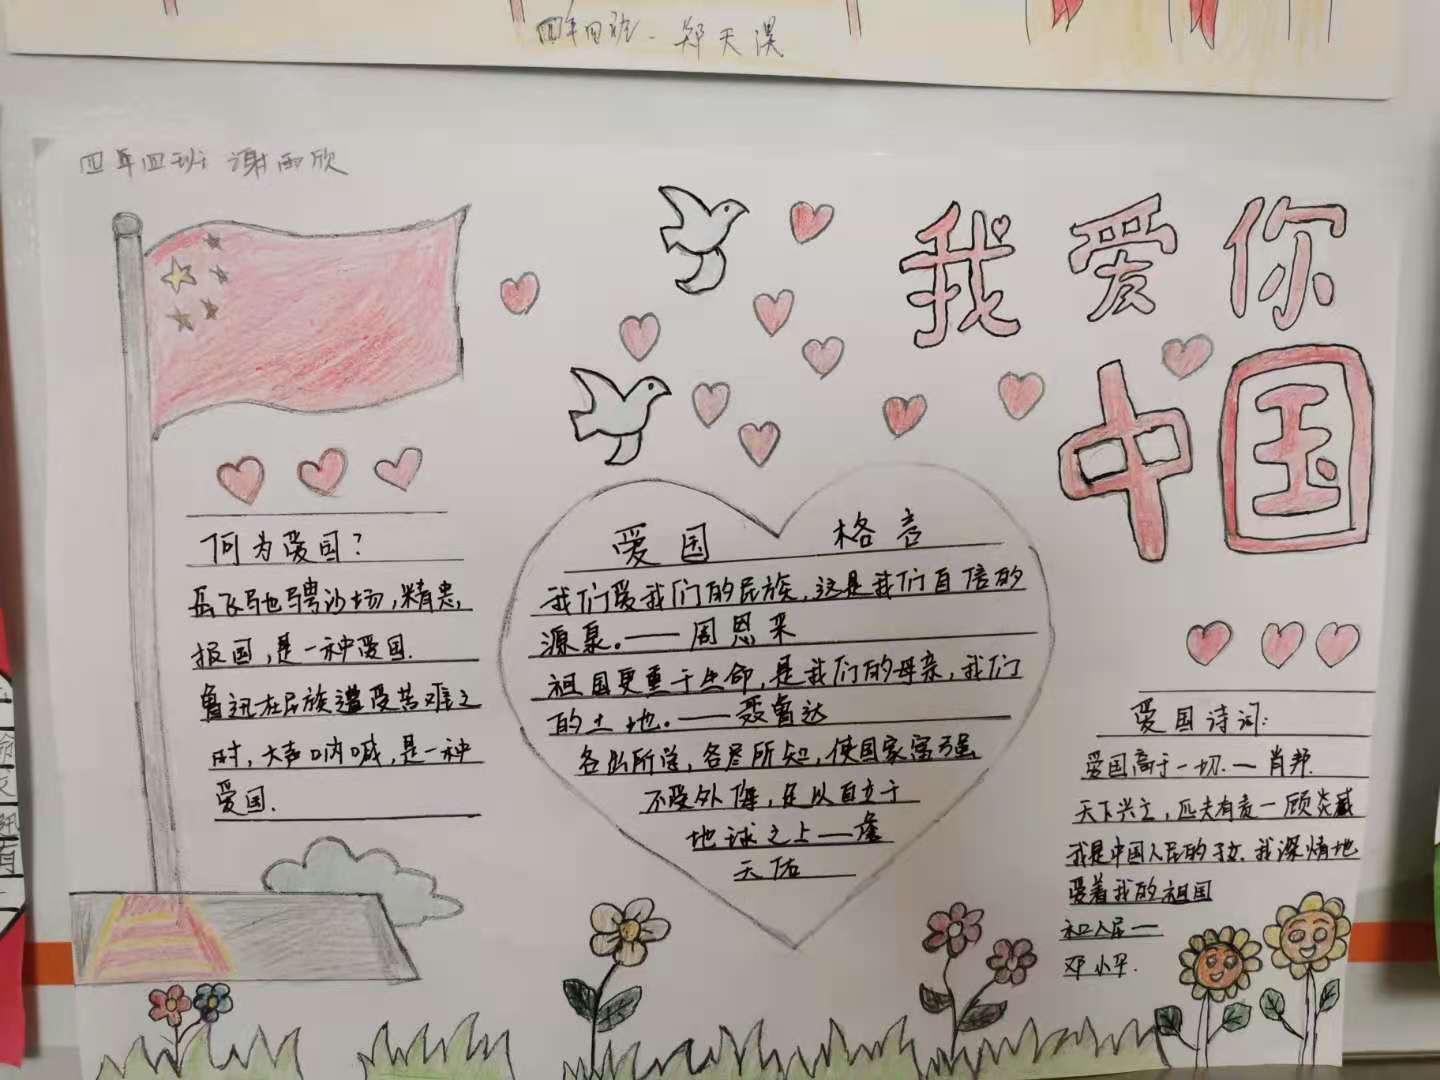 四年四班 郑天淏
四年四班 谢雨欣
我爱你
中国
何为爱国?
岳飞驰骋沙场,精忠
报国,是一种爱国.
鲁迅在民族遭受苦难之
时,大声呐喊,是一种
爱国.
爱国 格言
我们爱我们的民族,这是我们自信的
源泉。——周恩来
祖国更重于生命,是我们的母亲,我们
的土地。——聂鲁达
各出所学,各尽所知,使国家富强
不受外侮,足以自立于
地球之上——詹
天佑
爱国诗词:
爱国高于一切.—肖邦.
天下兴亡,匹夫有责—顾炎武
我是中国人民的子.我深情地
爱着我的祖国
和人民—
邓小平.